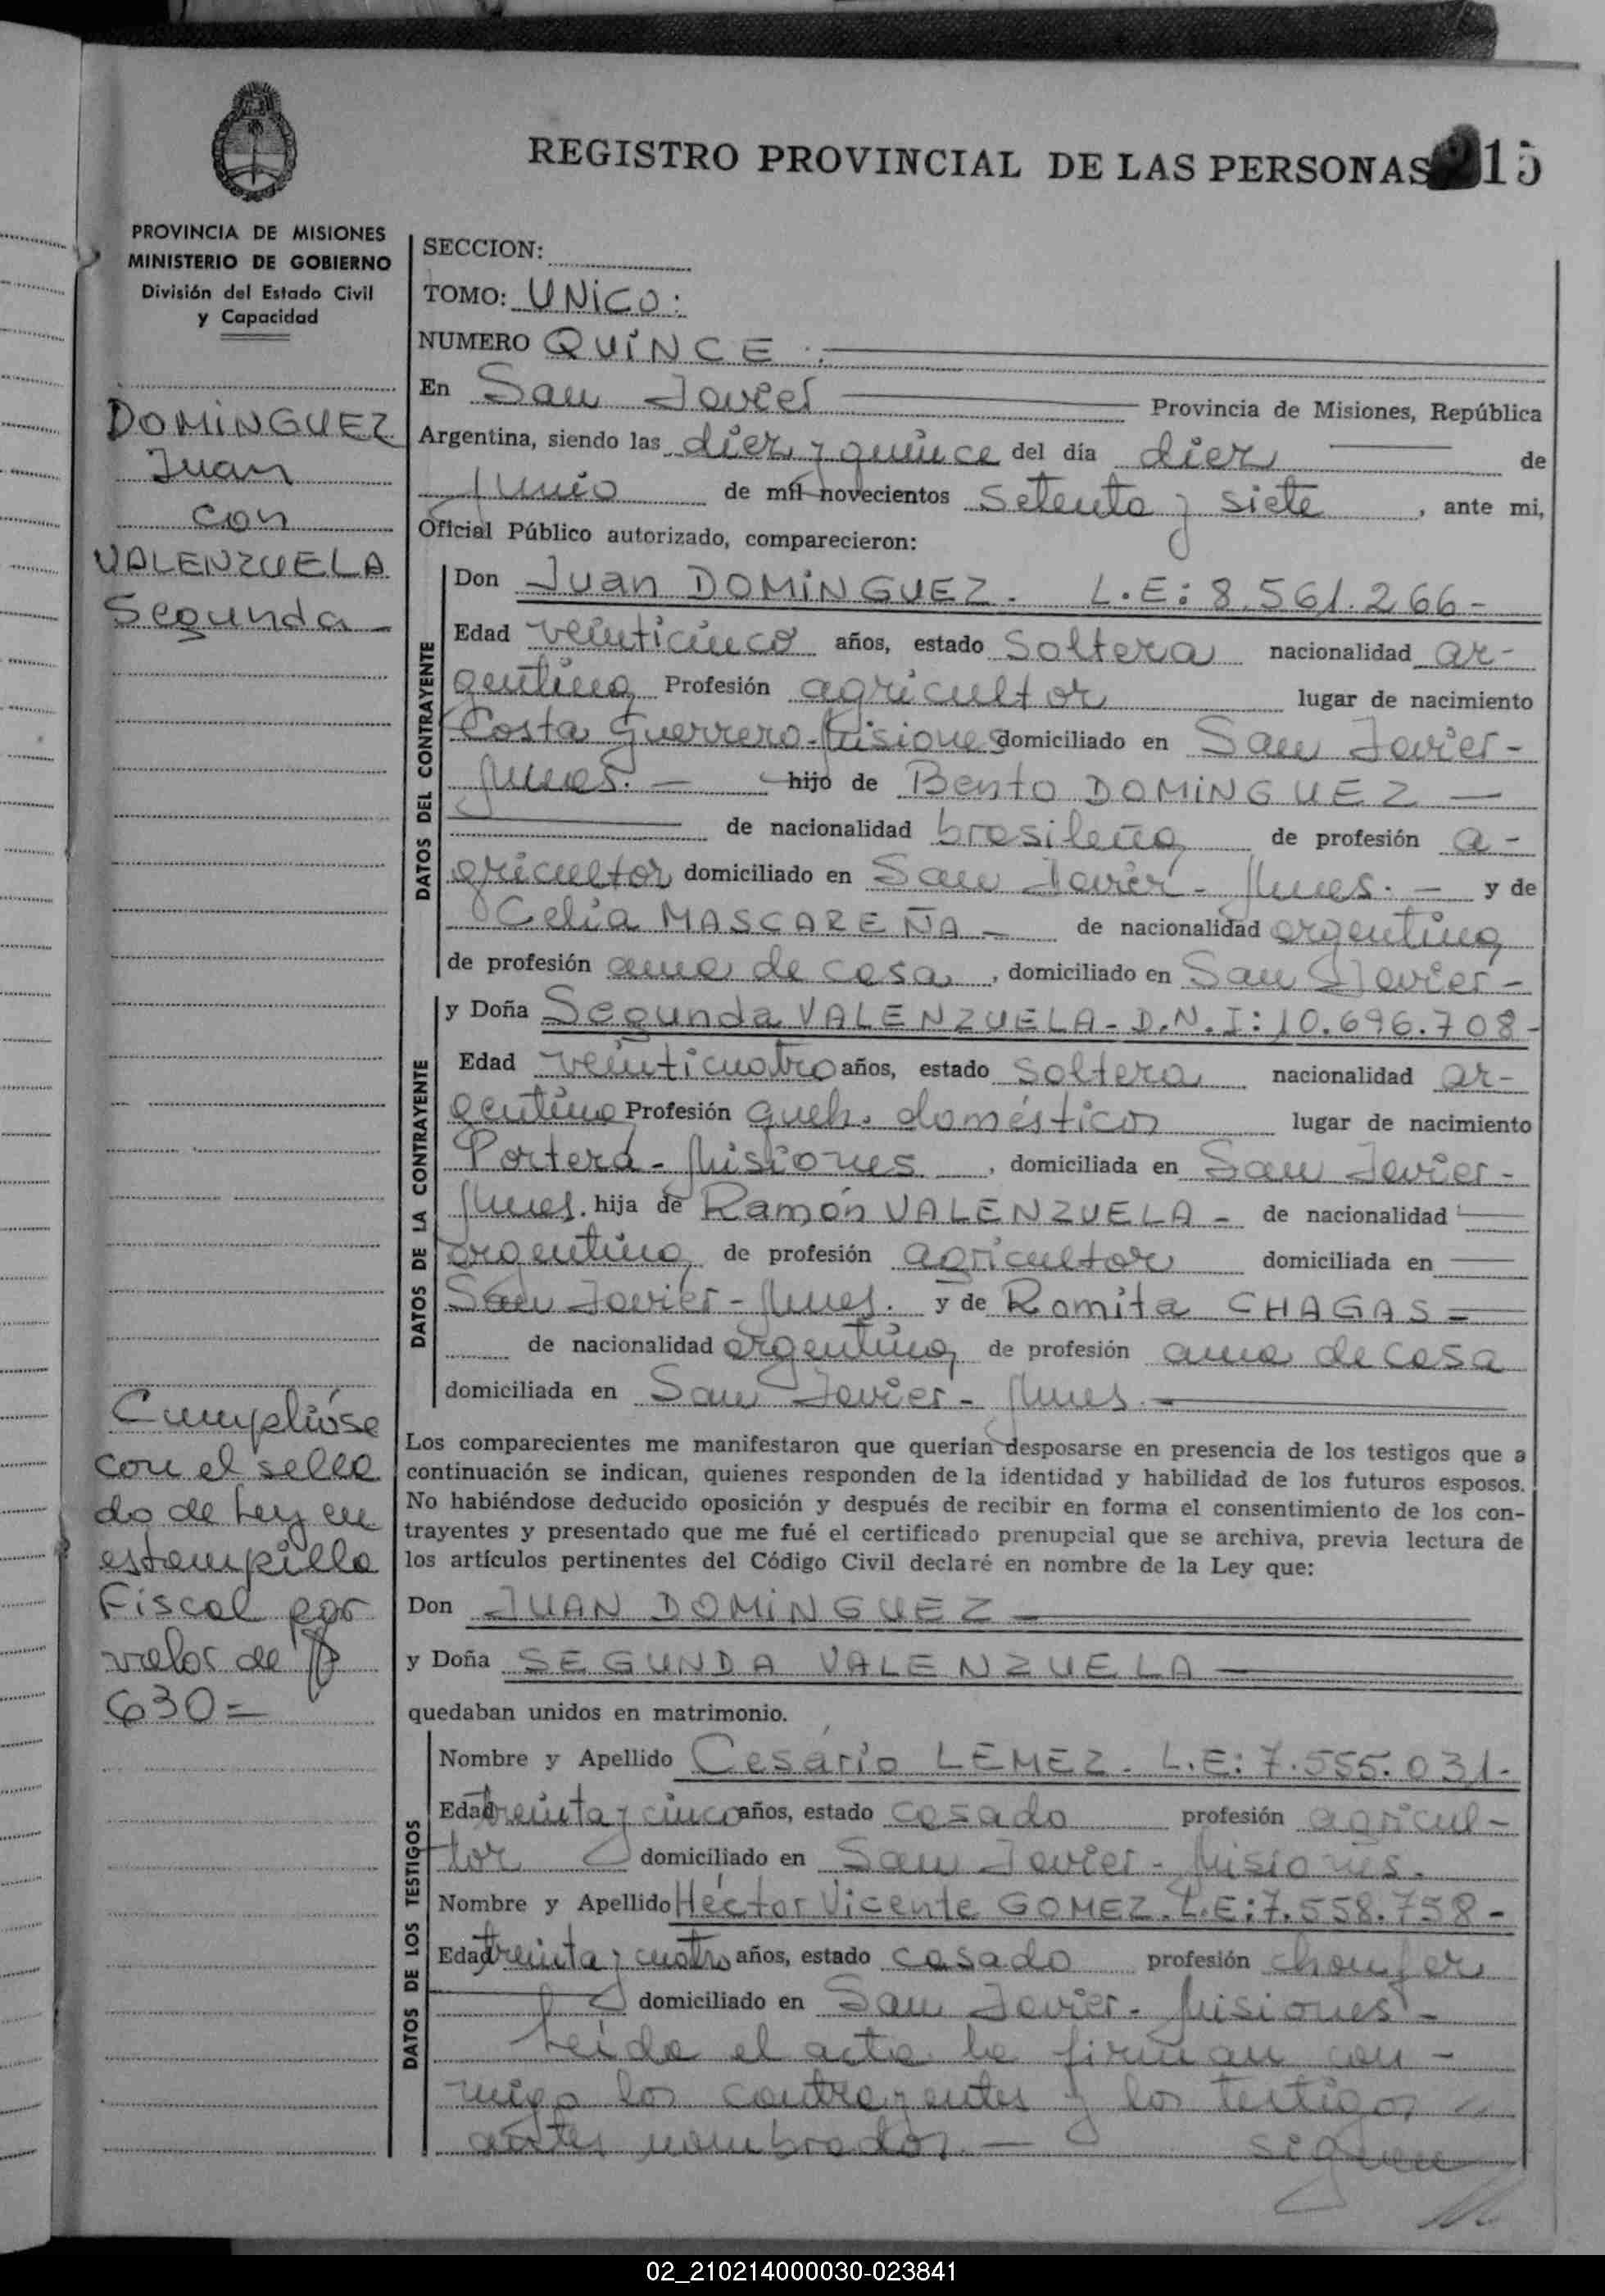 REGISTRO PROVINCIAL DE LAS PERSONAS 15
PROVINCIA DE MISIONES
MINISTERIO DE GOBIERNO
División del Estado Civil
y Capacidad
DOMINGUEZ
Juan
con
VALENZUELA
Segunda -
Cumplióse
con el sella
do de Ley en
estampilla
Fiscal por
valor de $
630=
SECCION:
TOMO: UNICO:
NUMERO QUINCE:
En San Javier Provincia de Misiones, República
Argentina, siendo las diez y quince del día diez de
Junio de mil novecientos Setenta y siete, ante mi,
Oficial Público autorizado, comparecieron:
DATOS DEL CONTRAYENTE
Don Juan DOMINGUEZ. L.E: 8.561.266-
Edad veinticinco años, estado Soltera nacionalidad ar-
gentina Profesión agricultor lugar de nacimiento
Costa Guerrero-Misiones domiciliado en San Javier-
Mnes. - hijo de Bento DOMINGUEZ -
de nacionalidad brasileña de profesión a-
gricultor domiciliado en San Javier- Mnes. - y de
Celia MASCAREÑA - de nacionalidad argentina
de profesión ama de casa, domiciliado en San Javier-
DATOS DE LA CONTRAYENTE
y Doña Segunda VALENZUELA- D.N.I: 10.696.708-
Edad veinticuatro años, estado Soltera nacionalidad ar-
gentina Profesión queh. domésticos lugar de nacimiento
Portera- Misiones, domiciliada en San Javier-
Mnes. hija de Ramón VALENZUELA - de nacionalidad
argentina de profesión agricultor domiciliada en
San Javier- Mnes. y de Romita CHAGAS=
de nacionalidad argentina de profesión ama de casa
domiciliada en San Javier- Mnes. -
Los comparecientes me manifestaron que querían desposarse en presencia de los testigos que a
continuación se indican, quienes responden de la identidad y habilidad de los futuros esposos.
No habiéndose deducido oposición y después de recibir en forma el consentimiento de los con-
trayentes y presentado que me fué el certificado prenupcial que se archiva, previa lectura de
los artículos pertinentes del Código Civil declaré en nombre de la Ley que:
Don JUAN DOMINGUEZ -
y Doña SEGUNDA VALENZUELA
quedaban unidos en matrimonio.
DATOS DE LOS TESTIGOS
Nombre y Apellido Cesário LEMEZ. L.E: 7.555.031-
Edad treinta y cinco años, estado casado profesión agricul-
tor domiciliado en San Javier- Misiones.
Nombre y Apellido Héctor Vicente GOMEZ. L.E: 7.558.758-
Edad treinta y cuatro años, estado casado profesión choufer
domiciliado en San Javier- Misiones -
Leída el acta la firman con-
migo los contrayentes y los testigos
antes nombrados. - siguen
02_210214000030-023841